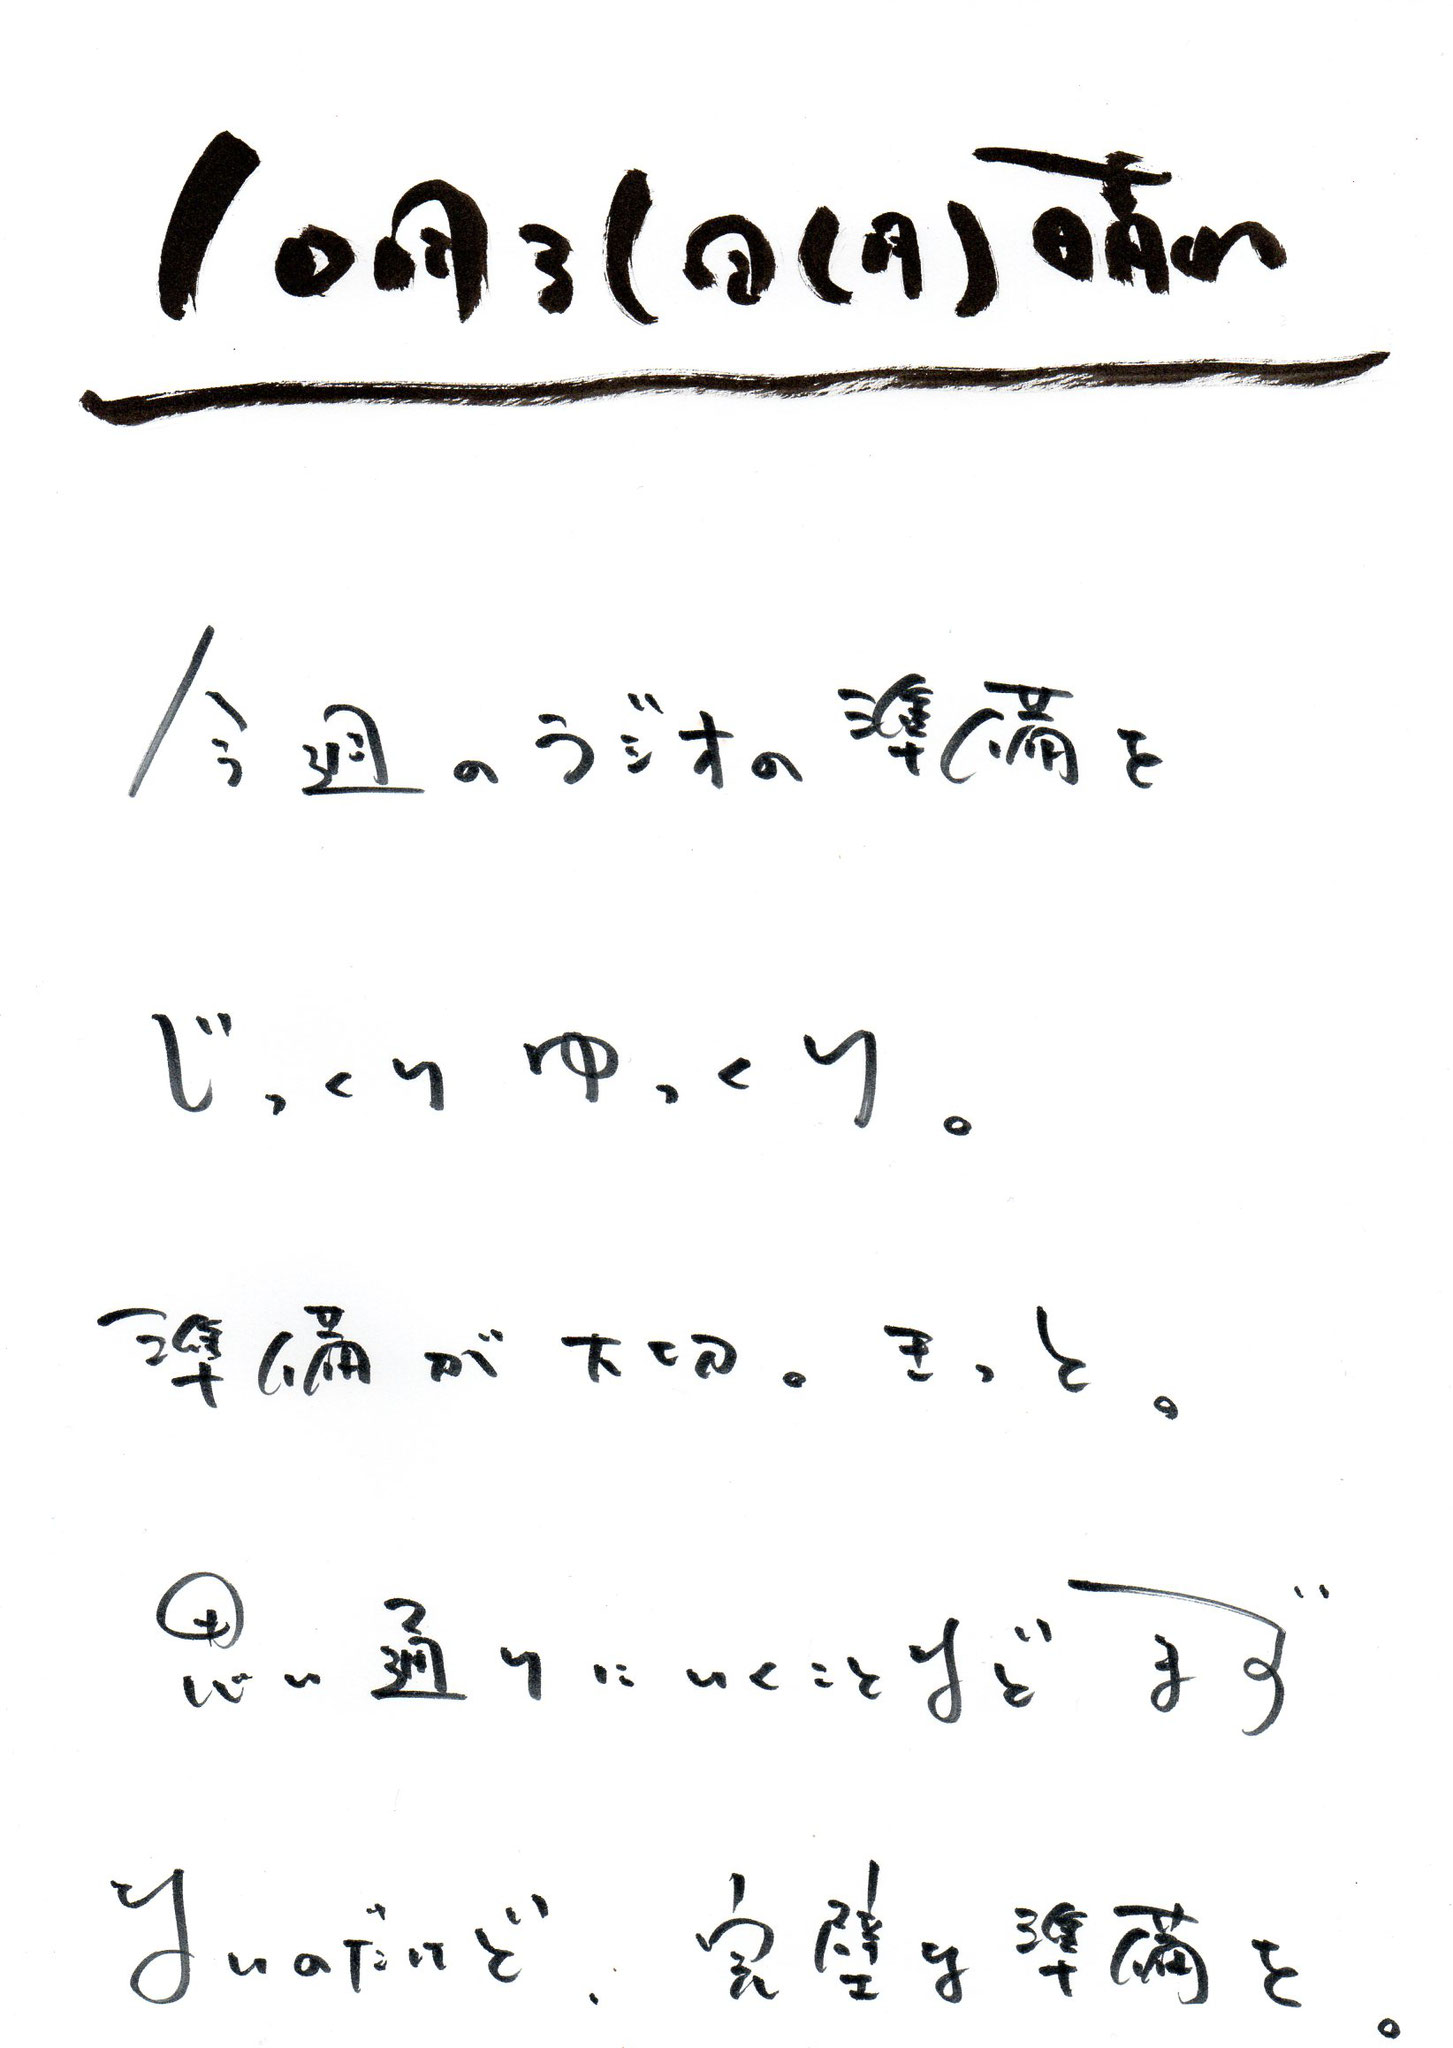 10月31日(月)晴れ
今週のラジオの準備を
じっくりゆっくり。
準備が大切。きっと。
思い通りにいくことなどまず
ないのだけど、完璧な準備を。